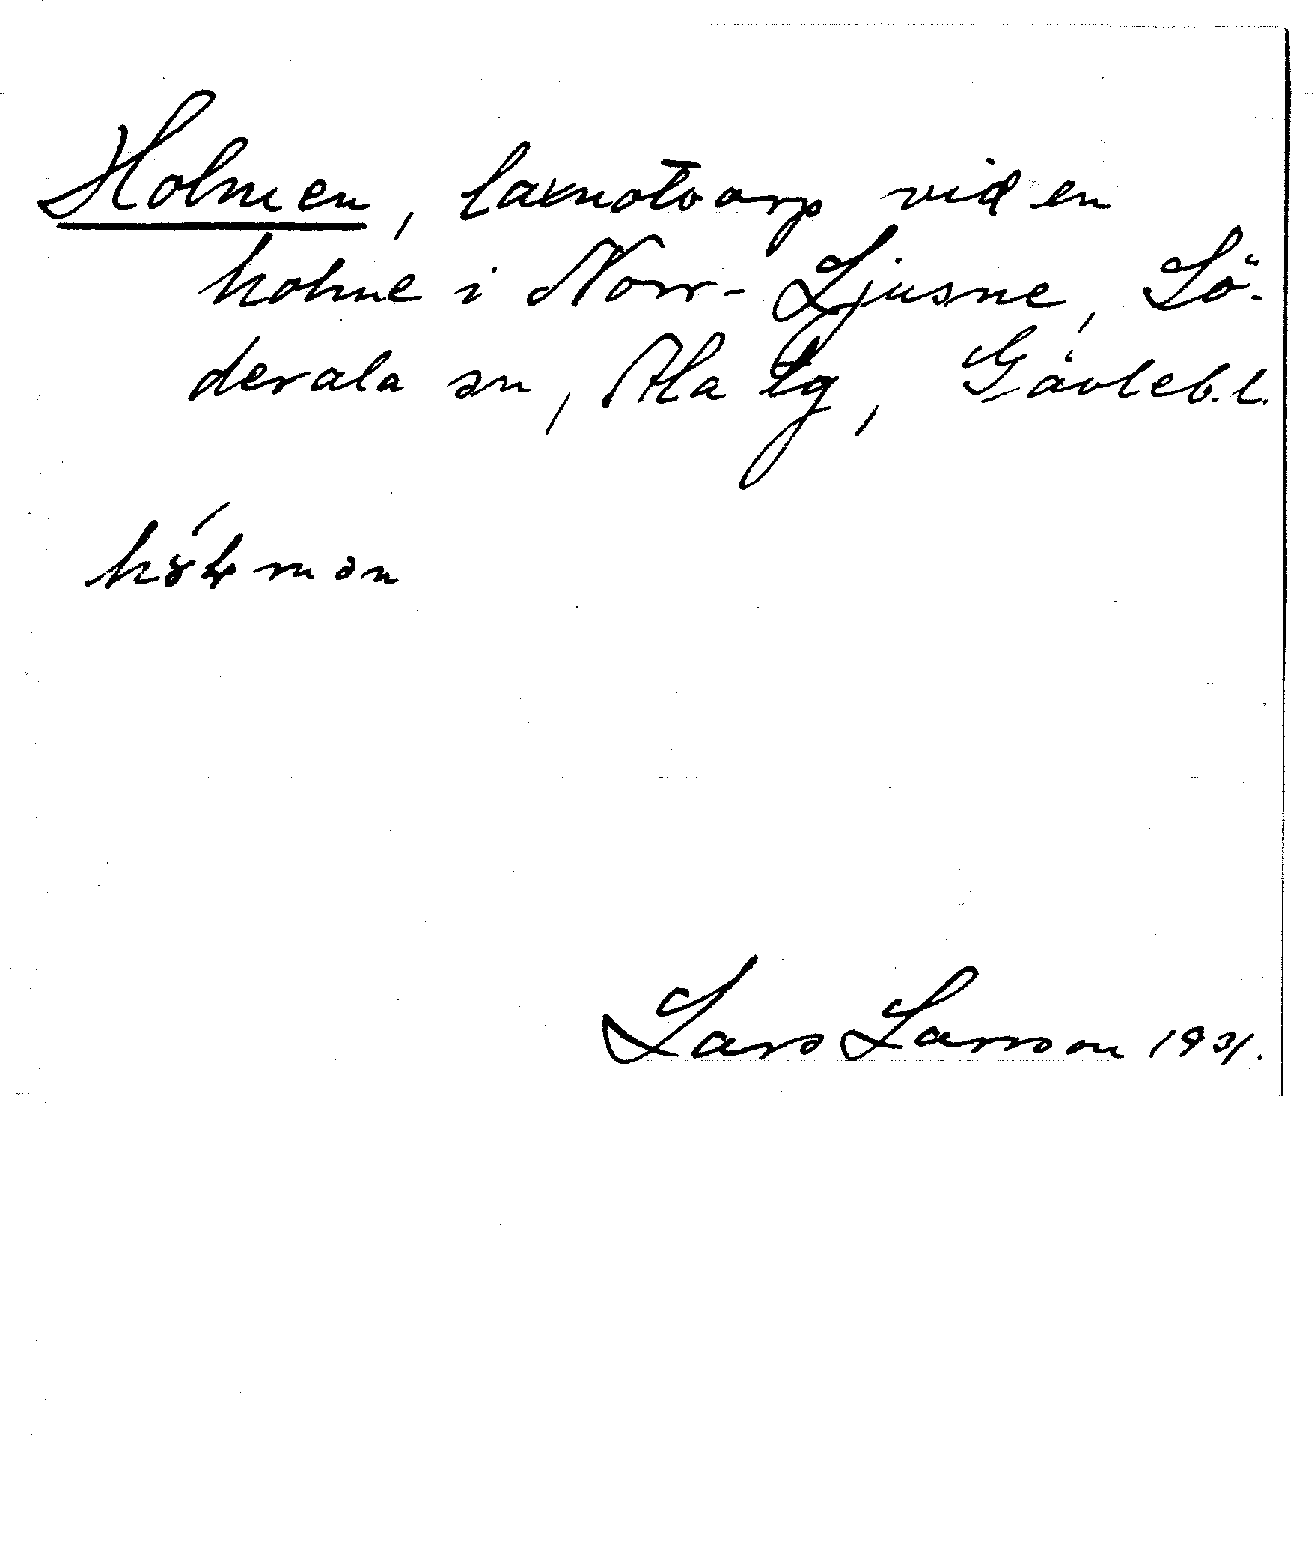 Holmen, laxnotvarp vid en
holme i Norr-Ljusne, Sö-
derala sn, Ala tg, Gävleb.l.
Lars Larsson 1931.